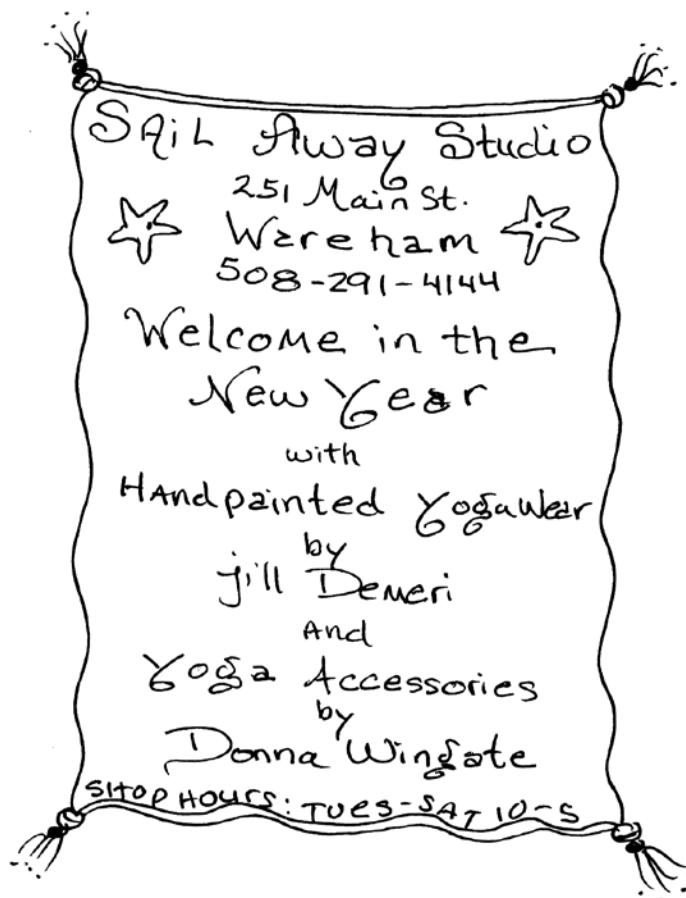 SAiL Away Studio
251 Main St.
Wareham
508-291-4144
Welcome in the
New Year
with
HAndpainted YogaWear
by
jill Demeri
And
Yoga Accessories
by
Donna Wingate
SHOP HOURS: TUES-SAT 10-5